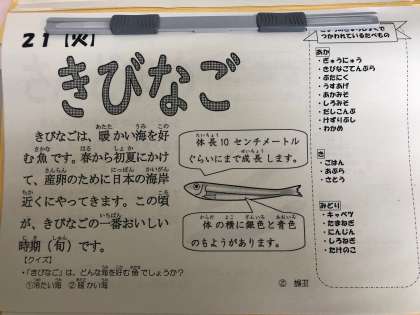 21【火】
きびなご
きびなごは、暖かい海を好
む魚です。春から初夏にかけ
て、産卵のために日本の海岸
近くにやってきます。この頃
が、きびなごの一番おいしい
時期（旬）です。
【クイズ】
・「きびなご」は、どんな海を好む魚でしょうか？
①冷たい海　②暖かい海
体長10センチメートル
ぐらいにまで成長します。
体の横に銀色と青色
のもようがあります。
つかわれているたべもの
あか
・ぎゅうにゅう
・きびなごてんぷら
・ぶたにく
・うすあげ
・あかみそ
・しろみそ
・だしこんぶ
・けずりぶし
・わかめ
き
・ごはん
・あぶら
・さとう
みどり
・キャベツ
・たまねぎ
・にんじん
・しろねぎ
・たけのこ